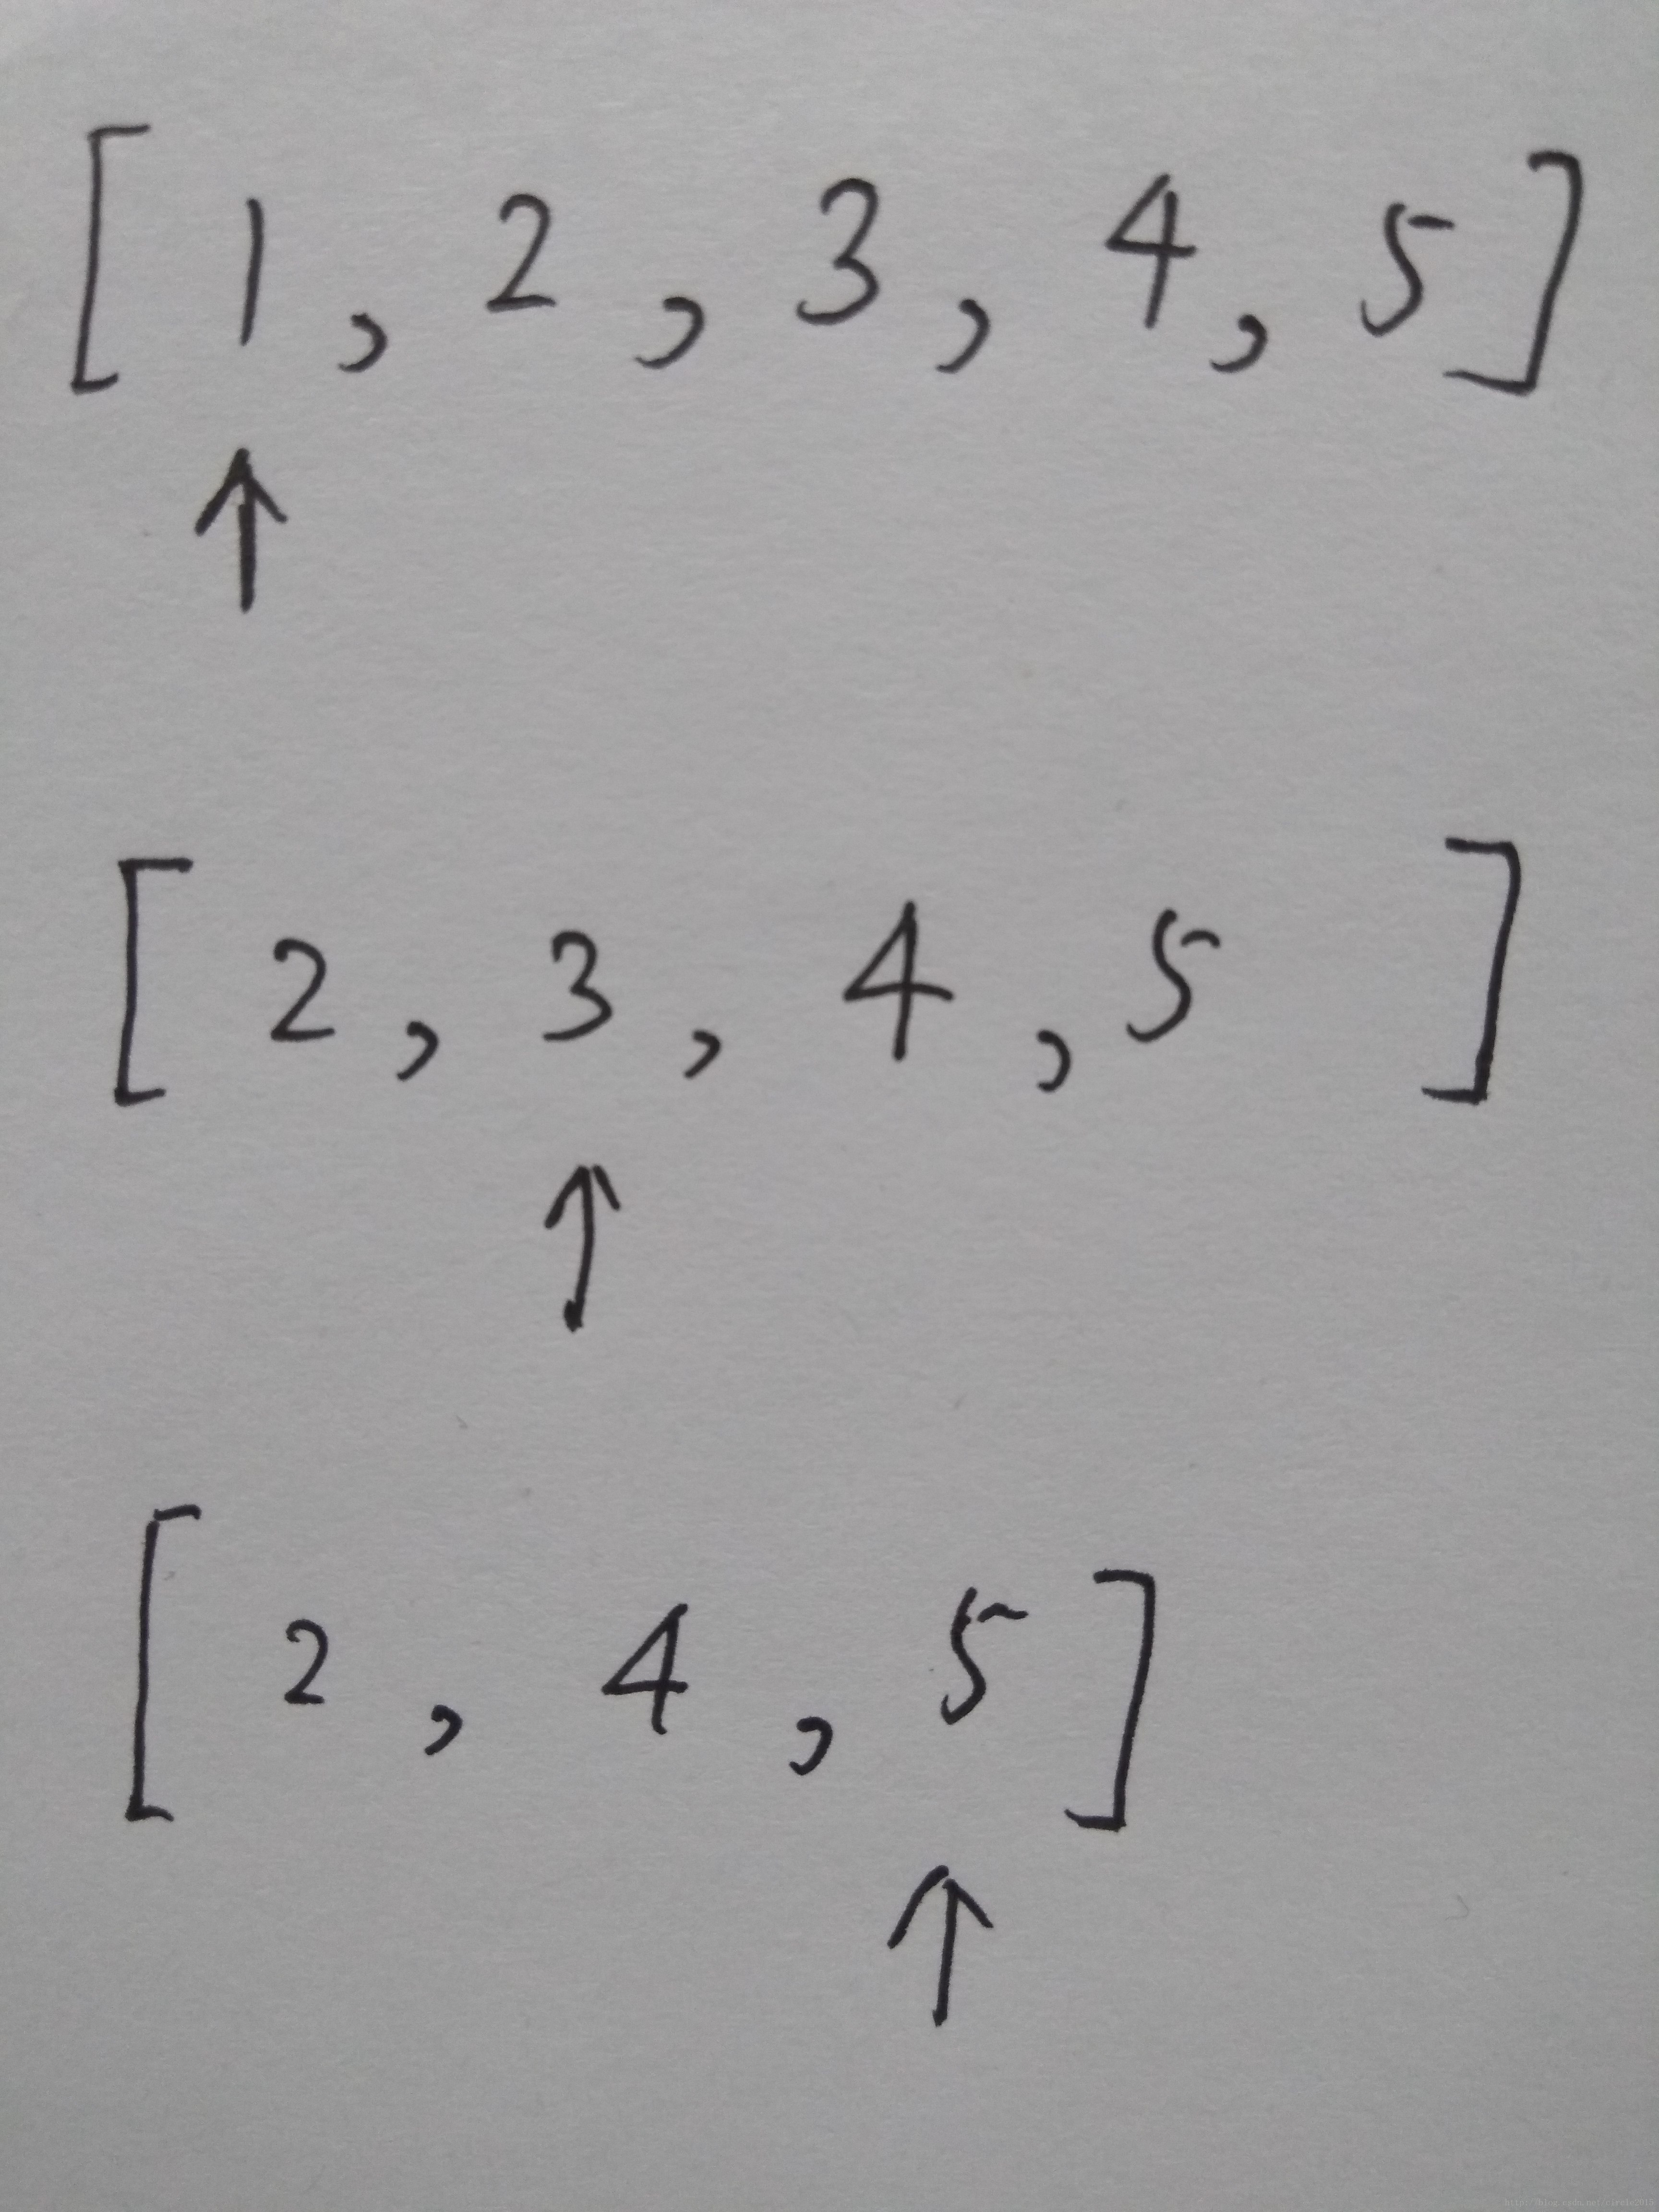 [ 1 , 2 , 3 , 4 , 5 ]
↑
[ 2 , 3 , 4 , 5 ]
↑
[ 2 , 4 , 5 ]
↑